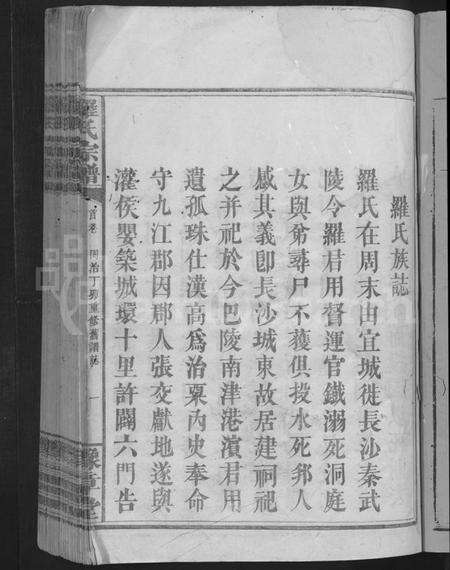 羅氏族誌
羅氏在周末由宜城徙長沙秦武
陵令羅君用督運官鐵溺死洞庭
女與弟尋尸不獲俱投水死邦人
感其義卽長沙城東故居建祠祀
之并祀於今巴陵南津港濱君用
遺孤珠仕漢高爲治粟內史奉命
守九江郡因郡人張交獻地遂與
灌侯嬰築城環十里許闢六門告
羅氏宗譜
首卷
同治丁卯重修舊譜誌
一
豫章堂